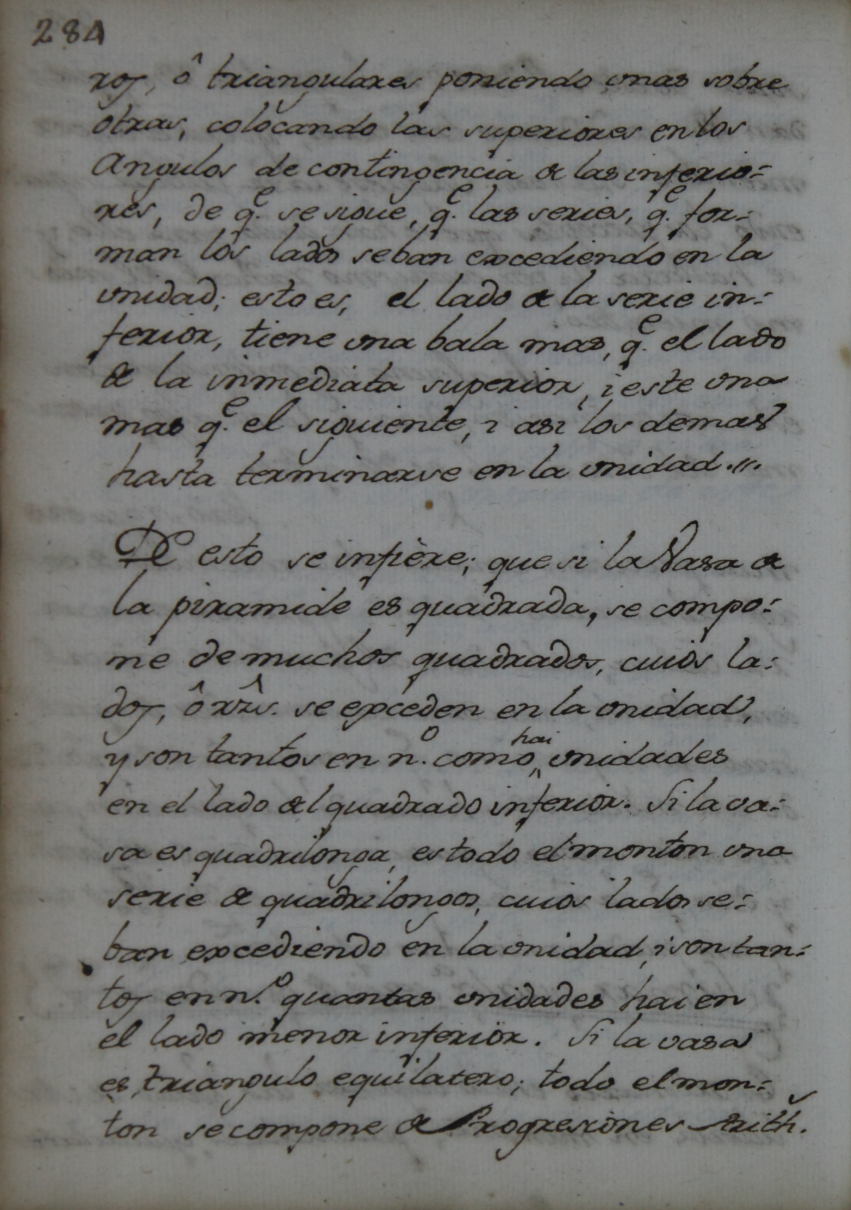 284
ros, ô triangulares poniendo unas sobre
otras, colocando las superiores en los
Angulos de contingencia de las inferio-
res, de q.e se sigue, q.e las series, q.e for-
man los lados seban excediendo en la
unidad; esto es, el lado de la serie in-
ferior, tiene una bala mas, q.e el lado
de la inmediata superior, i este una
mas q.e el siguiente, i asi los demas
hasta terminarse en la unidad.
De esto se infière; que si la Vasa de
la piramide es quadrada, se compo-
ne de muchos quadrados, cuios la-
dos, ô rzs. se exceden en la unidad,
y son tantos en n.o como hai unidades
en el lado del quadrado inferior. Si la va-
sa es quadrilonga, es todo el monton una
serie de quadrilongos, cuios lados se-
ban excediendo en la unidad, i son tan-
tos en n.o quantas unidades hai en
el lado menor inferior. Si la vasa
es triangulo equilatero; todo el mon-
ton se compone de Progresiones Arith.